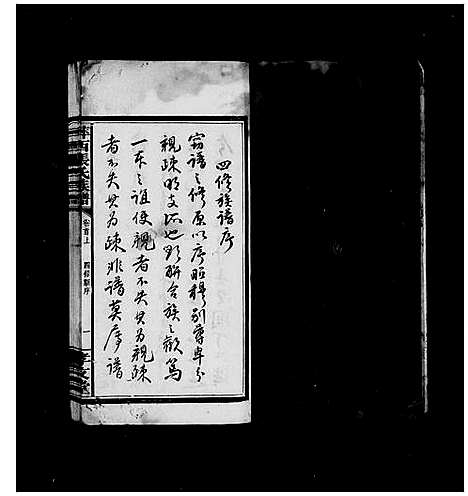 四修族譜序
竊譜之修原以序昭穆別尊卑分
親疎明支派也聯合族之歡篤
一本之誼使親者不失其為親疎
者不失其為疎非譜莫序譜
氏族譜
卷首上
四修譜序
一
孝友堂